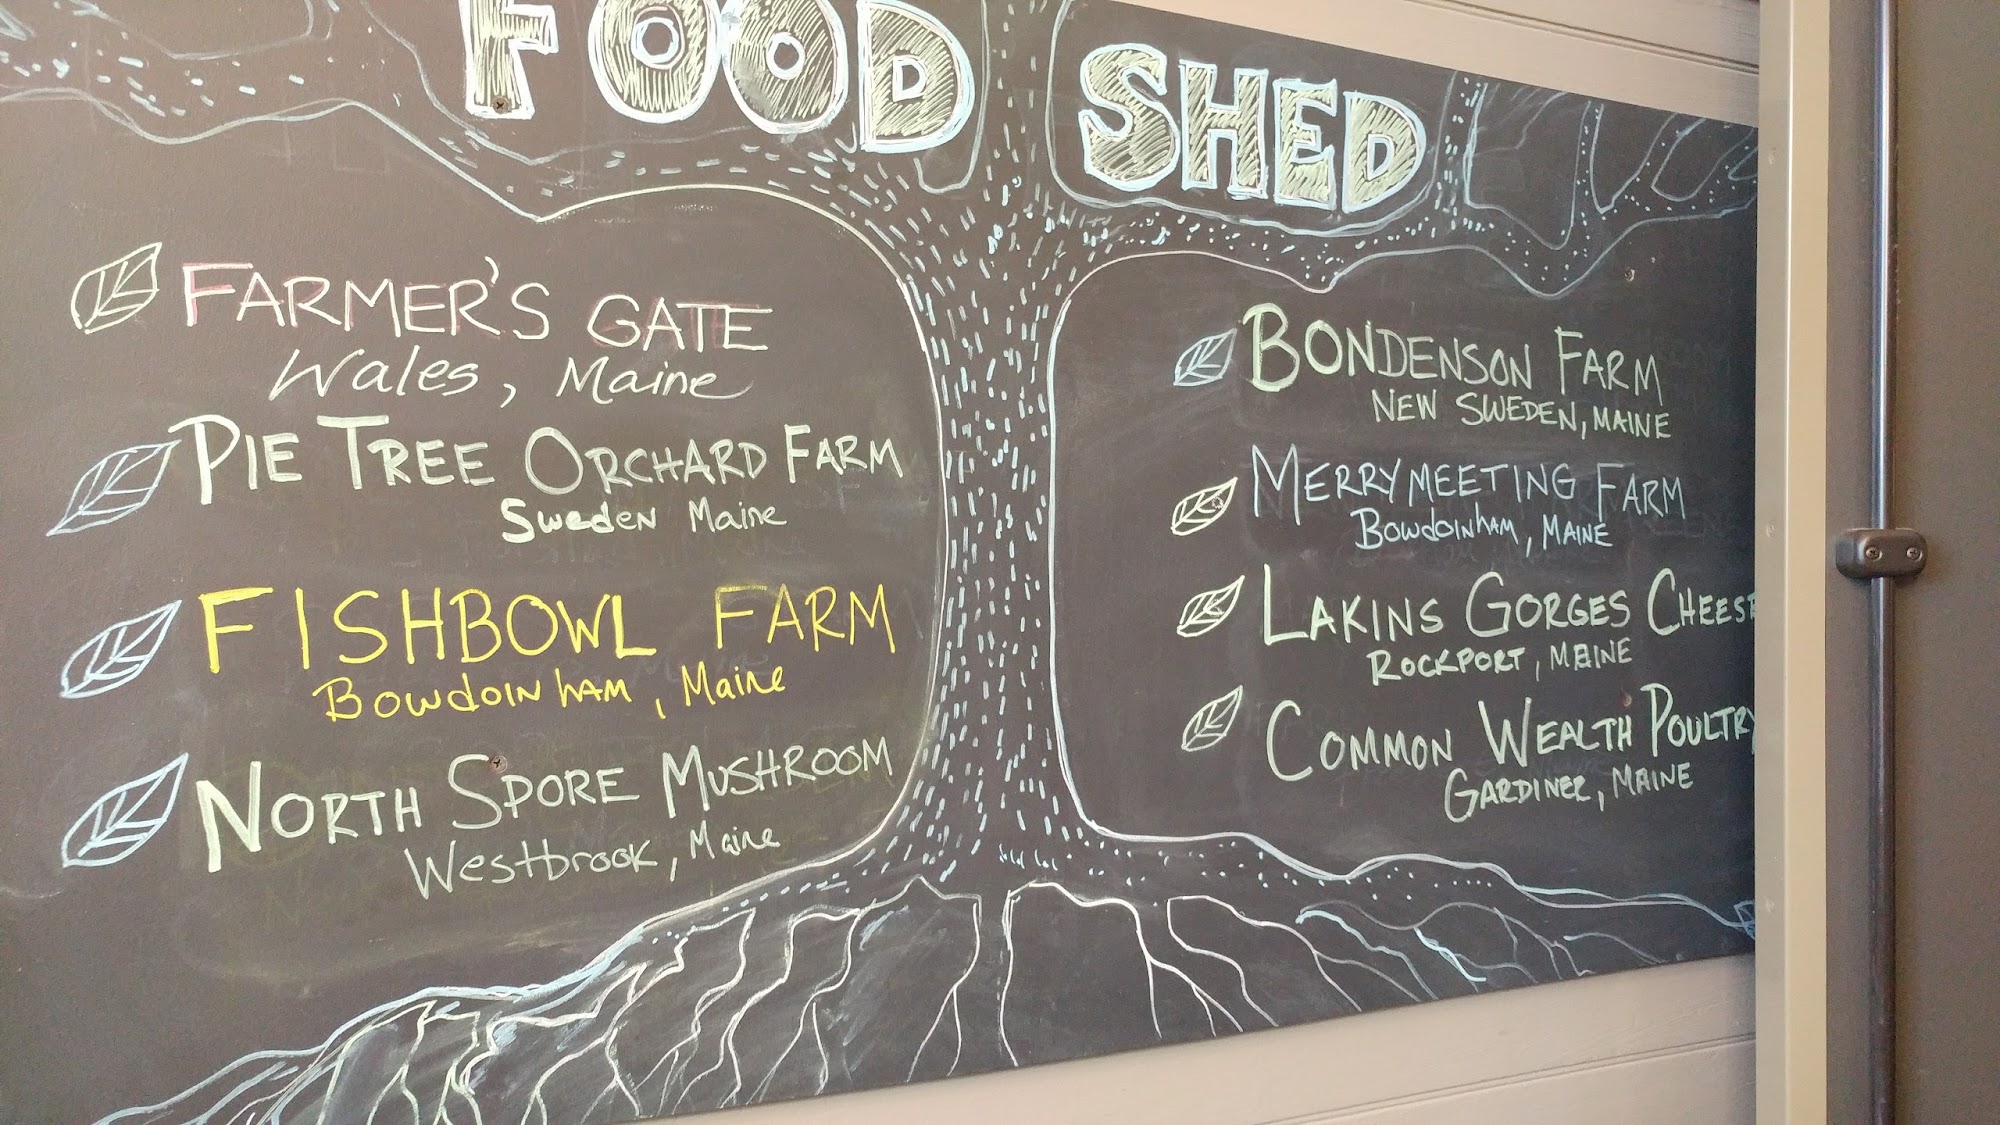 FOOD SHED
FARMER'S GATE
Wales, Maine
PIE TREE ORCHARD FARM
Sweden Maine
FISHBOWL FARM
Bowdoinham, Maine
NORTH SPORE MUSHROOM
Westbrook, Maine
BONDENSON FARM
NEW SWEDEN, MAINE
MERRYMEETING FARM
Bowdoinham, MAINE
LAKINS GORGES CHEESE
ROCKPORT, MAINE
COMMON WEALTH POULTRY
GARDINER, MAINE